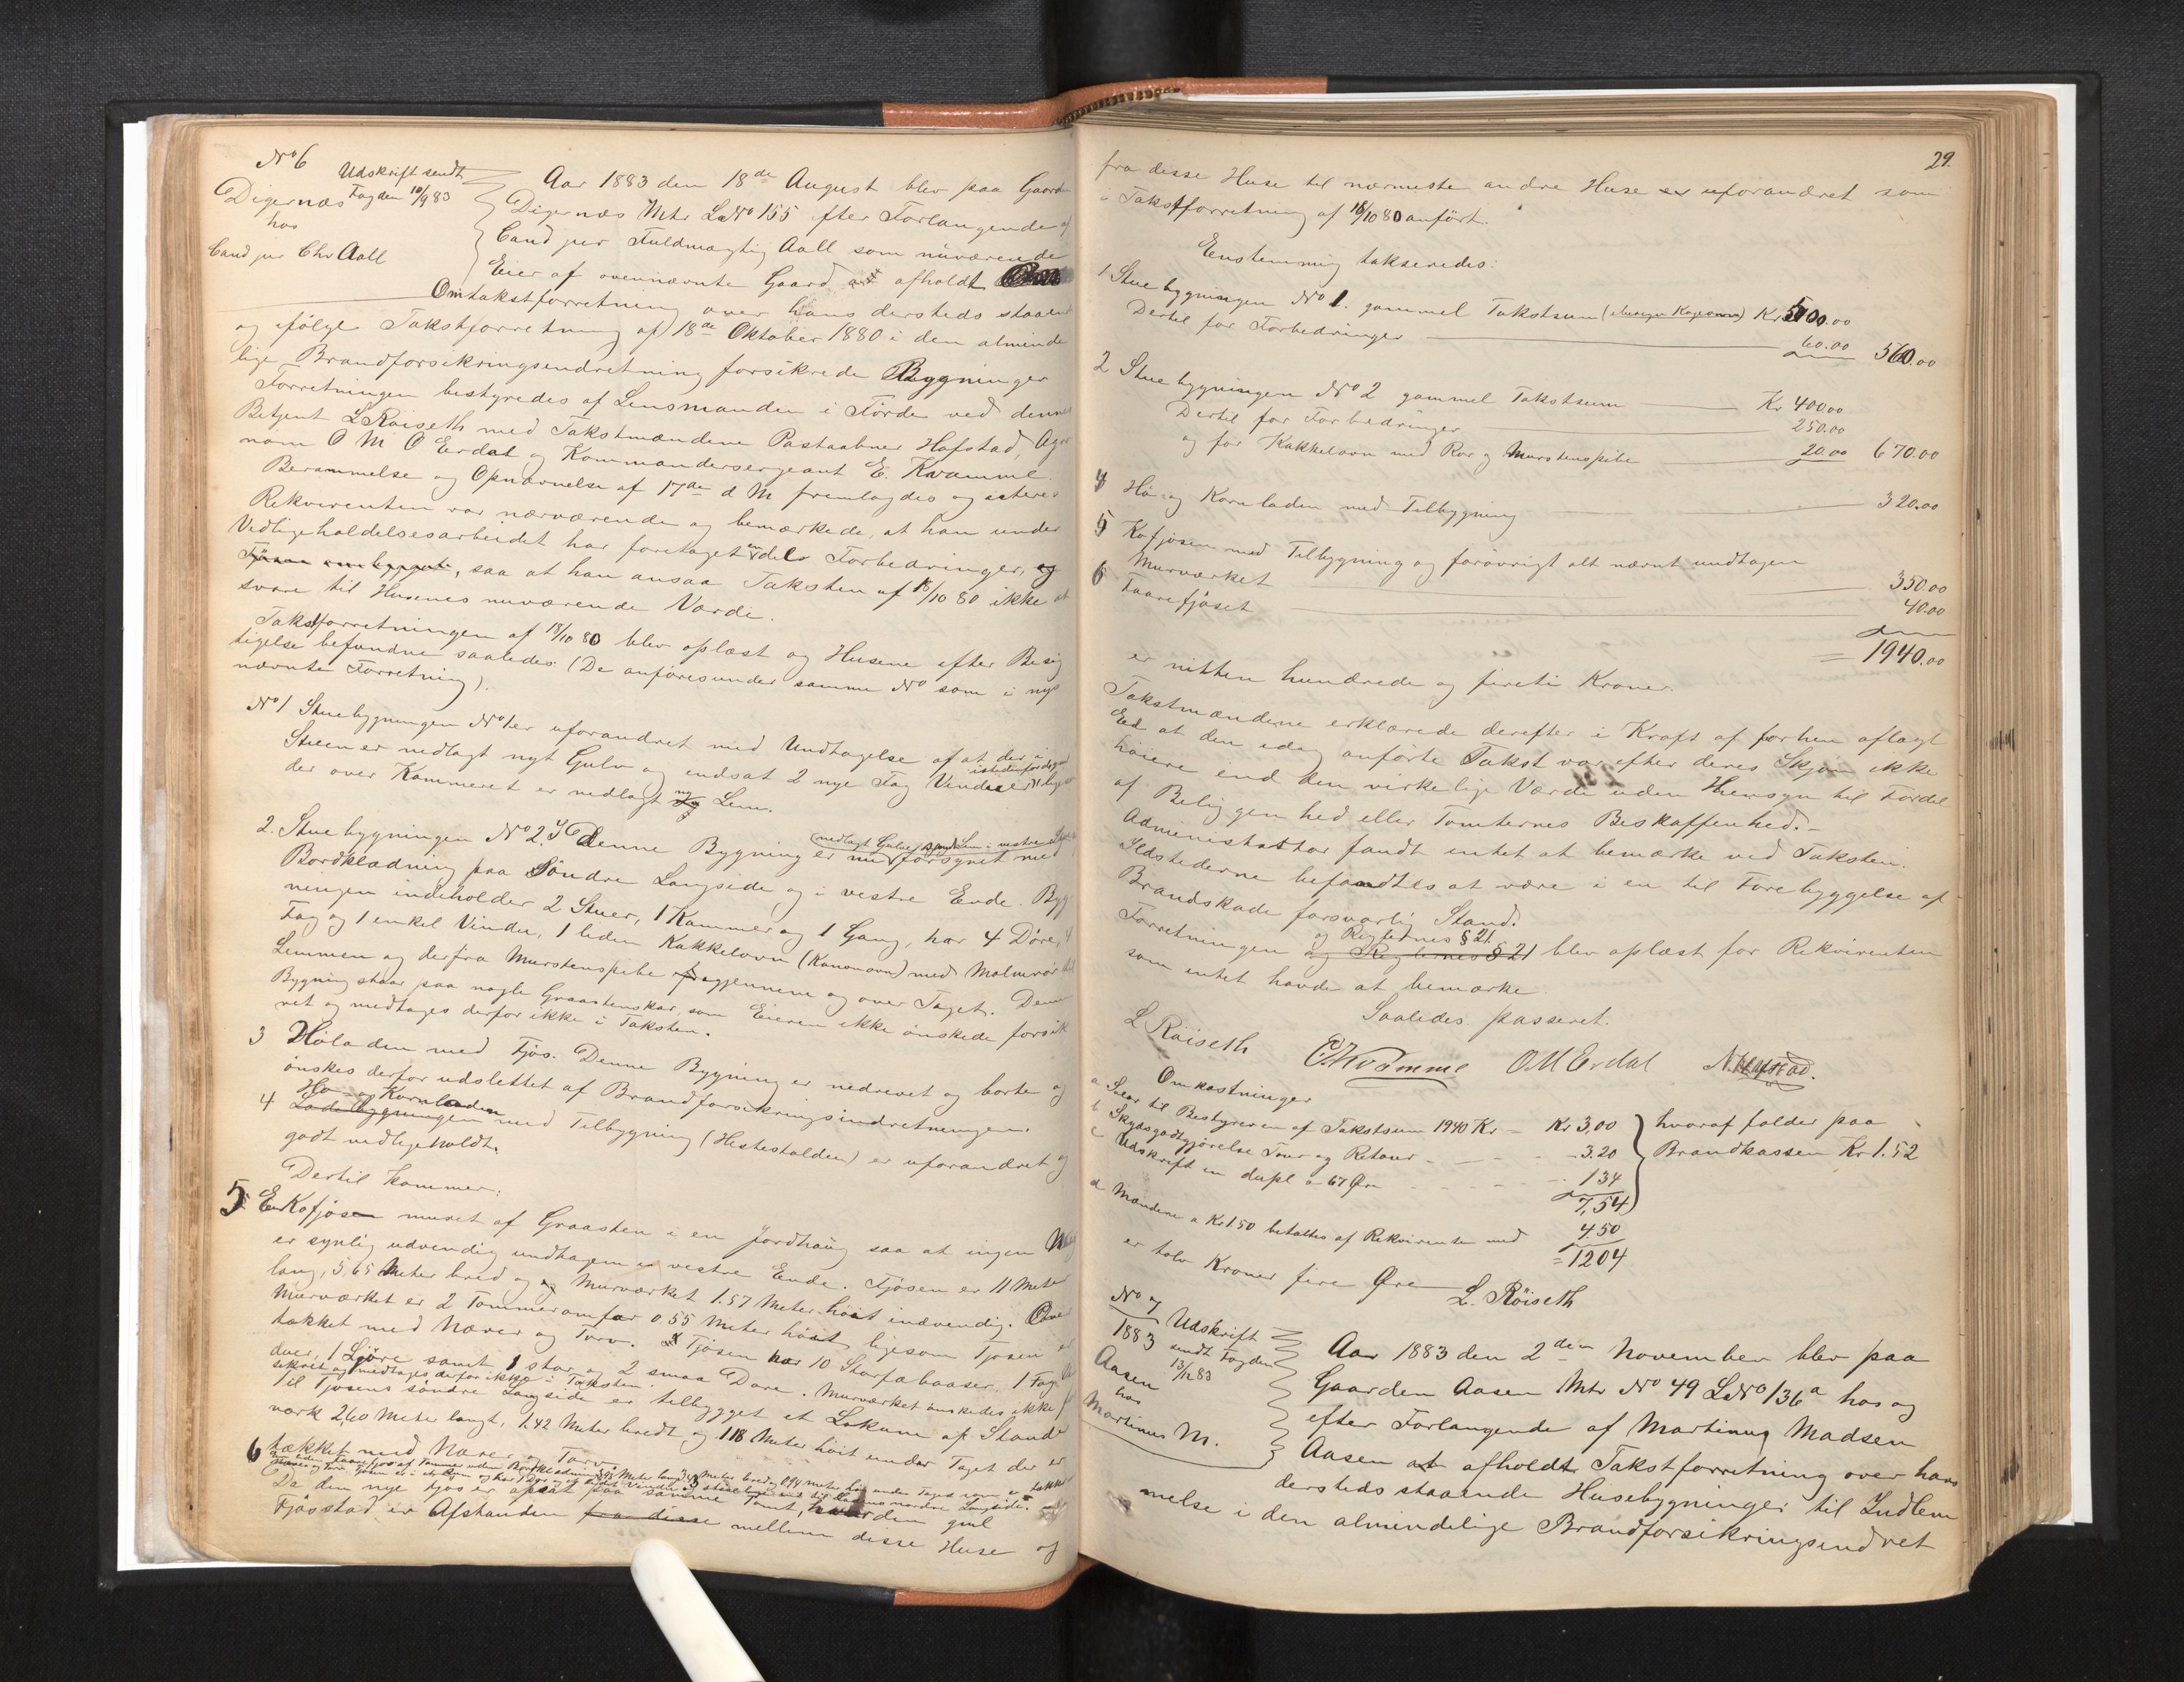 No 6
Udskrift sendt
Fogden 10/9 83
Digernæs
hos
Cand jur Chr Aall
Aar 1883 den 18de August blev paa Gaarden
Digernæs Mtr LNo 155 efter Forlangende af
Cand jur Fuldmægtig Aall som nuværende
Eier af ovennævnte Gaard afholdt
Omtakstforretning over hans dersteds staaend
og ifølge Takstforretning af 18de Oktober 1880 i den alminde
lige Brandforsikringsindretning forsikrede Bygninger
Forretningen bestyredes af Lensmanden i Förde ved dennes
Betjent L Röiseth med Takstmændene Postaabner Hafstad, Agro
nom O M O Erdal og Kommandersergeant E. Kvamme.
Berammelse og Opnævnelse af 17de d M fremlagdes og
Rekvirenten var nærværende og bemærkede, at han under
Vedligeholdelsesarbeidet har foretaget en del Forbedringer, og
saa at han ansaa Taksten af 18/10 80 ikke at
svare til Husenes nuværende Værdi.
Takstforretningen af 18/10 80 blev oplæst og Husene efter Besig
tigelse befundne saaledes: (De anföres under samme No som i nys
nævnte Forretning).
No 1 Stuebygningen No 1 er uforandret med Undtagelse af at der i
Stuen er nedlagt nyt Gulv og indsat 2 nye Fag Vinduer
istedenfor
der over Kammeret er nedlagt ny Lem.
2. Stuebygningen No 2. Denne Bygning er nu forsynet med
nedlagt Gulv og Lem i vestre
Bordklædning paa Söndre Langside og i vestre Ende. Byg
ningen indeholder 2 Stuer, 1 Kammer og 1 Gang, har 4 Döre, 4
Fag og 1 enkel Vindu, 1 liden Kakkelovn (Kanonovn) med Malmrör til
Lemmen og derfra Murstenspibe igjennem og over Taget. Denne
Bygning staar paa nogle Graastenskar, som Eieren ikke önskede forsik
ret og medtages derfor ikke i Taksten.
3 Höladen med Fjös. Denne Bygning er nedrevet og borte og
önskes derfor udslettet af Brandforsikringsindretningen.
Hö- og Kornladen
4 Ladebygningen med Tilbygning (Hestestalden) er uforandret og
godt vedligeholdt.
Dertil kommer:
5 En Kofjös muret af Graasten i en Jordhaug saa at ingen Væg
er synlig udvendig undtagen i vestre Ende. Fjösen er 11 Meter
lang, 5,65 Meter bred og Murværket 1.57 Meter höit indvendig. Over
Murværket er 2 Tommeromfar 0.55 Meter höit ligesom Fjösen er
tækket med Næver og Torv. Fjösen har 10 Storfæbaaser, 1 Fag Vin
duer, 1 samt 1 stor og 2 smaa Döre. Murværket önskedes ikke for
sikret og medtages derfor ikke i Taksten.
Til Fjösens söndre Langside er tilbygget et Lokum af Stand
værk 2.60 Meter langt, 1.42 Meter bredt og 1.18 Meter höit under Taget der er
tækket med Næver og Torv.
6
Da den nye Fjös er opsat paa samme Tomt, hvor den gml
Fjös stod er Afstanden fra disse mellem disse Huse og
29.
fra disse Huse til nærmeste andre Huse er uforandret som
i Takstforretning af 18/10 80 anfört.
Enstemmig takseredes:
1 Stuebygningen No 1. gammel Takstsum Kr 500.00
Dertil for Forbedringer 60.00 560.00
2 Stuebygningen No 2 gammel Takstsum Kr 400.00
Dertil for Forbedringer 250.00
og for Kakkelovn med Rör og Murstenspibe 20.00 670.00
4 Hö- og Kornladen med Tilbygning 320.00
5 Kofjösen med Tilbygning og forövrigt alt nævnt undtagen
Murværket 350.00
6 Faarefjöset 40.00
= 1940.00
er nitten hundrede og fireti Kroner.
Takstmændene erklærede derefter i Kraft af forhen aflagt
Ed at den idag anförte Takst var efter deres Skjön ikke
höiere end den virkelige Værdi uden Hensyn til Fordel
af Beliggenhed eller Tomternes Beskaffenhed.-
Administrator fandt intet at bemærke ved Taksten.
Ildstederne befandtes at være i en til Forebyggelse af
Brandskade forsvarlig Stand.
og Reglernes § 21
Forretningen og Reglernes § 21 blev oplæst for Rekvirenten
som intet havde at bemærke.
Saaledes passeret.
L Röiseth E Kvamme O M Erdal N. Hafstad.
Omkostninger
a Salær til Bestyreren af Takstsum 1940 Kr - Kr 3.00
b Skydsgodtgjörelse Tour og Retour - 3.20
c Udskrift in dupl a 67 Öre 134
7,54
hvoraf falder paa
Brandkassen Kr 1.52
d Mændene a Kr 1.50 betaltes af Rekvirenten med 4.50
= 1204
er tolv Kroner fire Öre
L. Röiseth
No 7
1883
Udskrift
sendt Fogden
13/12 83
Aasen
hos
Martinus M.
Aar 1883 den 2den November blev paa
Gaarden Aasen Mtr No 49 LNo 136a hos og
efter Forlangende af Martinus Madsen
Aasen at afholdt Takstforretning over hans
dersteds staaende Husebygninger til Indlem
melse i den almindelige Brandforsikringsindret